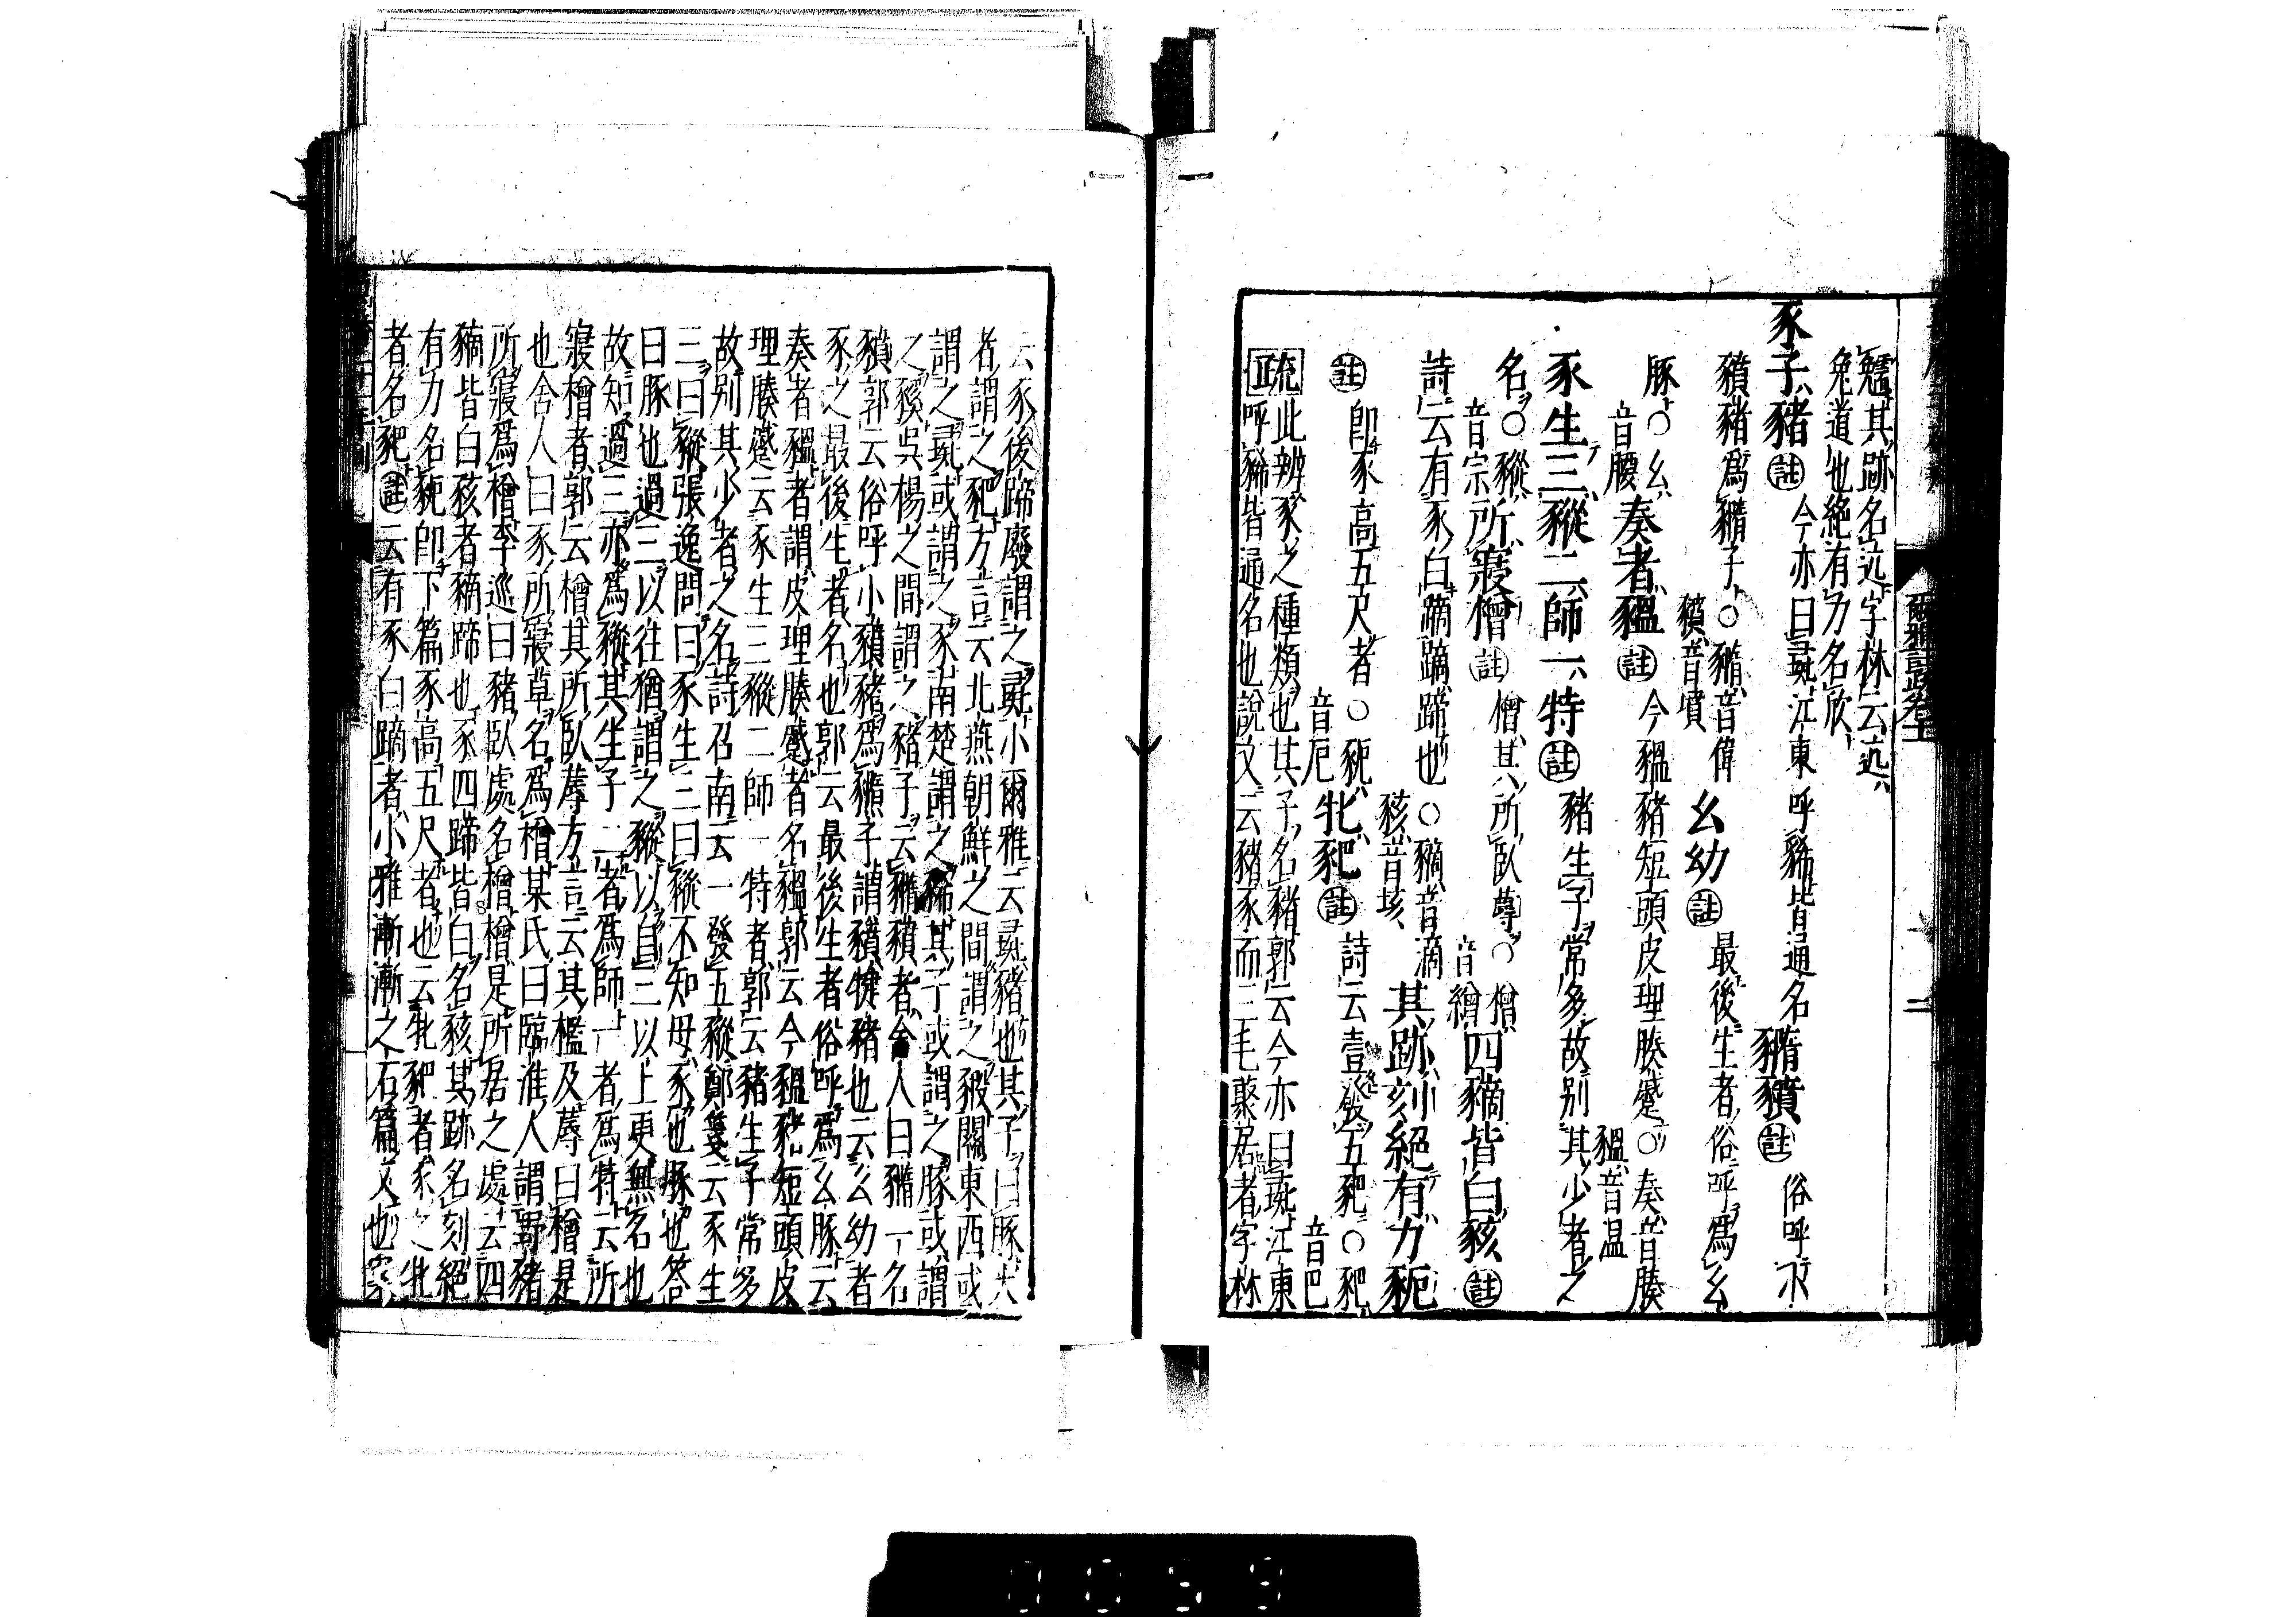 爾雅註疏卷十
䨲其跡名迒字林云迒
兔道也絕有力名欣
豕子豬註今亦曰彘江東呼豨皆通名豶註俗呼小
豶豬爲䝐子○音偉豶音墳幺幼註最後生者俗呼爲幺
豚○幺音腰奏者豱註今豱豬短頭皮理腠蹙○奏音腠豱音温
豕生三豵二師一特註豬生子常多故別其少者之
名○豵音宗所寢橧註橧其所臥蓐○橧音繒四豴皆白豥註
詩云有豕白蹢蹢蹄也○豴音滴豥音垓其跡刻絕有力䝈
註卽豕高五尺者○䝈音厄牝豝註詩云壹發五豝○豝音巴
疏此辨豕之種類也其子名豬郭云今亦曰彘江東
呼豨皆通名也說文云豬豕而三毛藂居者字林
云豕後蹄廢謂之彘小爾雅云彘豬也其子曰豚大
者謂之豝方言云北燕朝鮮之間謂之豭關東西或
謂之彘或謂之豕南楚謂之豨其子或謂之豚或謂
之豯吳楊之間謂之豬子云豶者舍人曰一名
豶郭云俗呼小豶豬爲子謂豶犍豬也云幺幼者
豕之最後生者名也郭云最後生者俗呼爲幺豚云
奏者豱者謂皮理腠蹙者名豱郭云今豱豬短頭皮
理腠蹙云豕生三豵二師一特者郭云豬生子常多
故別其少者之名詩召南云一發五豵鄭箋云豕生
三曰豵張逸問曰豕生三曰豵不知母豕也豚也答
曰豚也過三以往猶謂之豵以自三以上更無名也
故知過三亦爲豵其生子二者爲師一者爲特云所
寢橧者郭云橧其所臥蓐方言云其檻及蓐曰橧是
也舍人曰豕所寢草名爲橧某氏曰臨淮人謂野豬
所寢爲橧李巡曰豬臥處名橧橧是所居之處云四
豴皆白豥者豴蹄也豕四蹄皆白名豥其跡名刻絕
有力名䝈卽下篇豕高五尺者也云牝豝者豕之牝
者名豝註云有豕白蹢者小雅漸漸之石篇文也